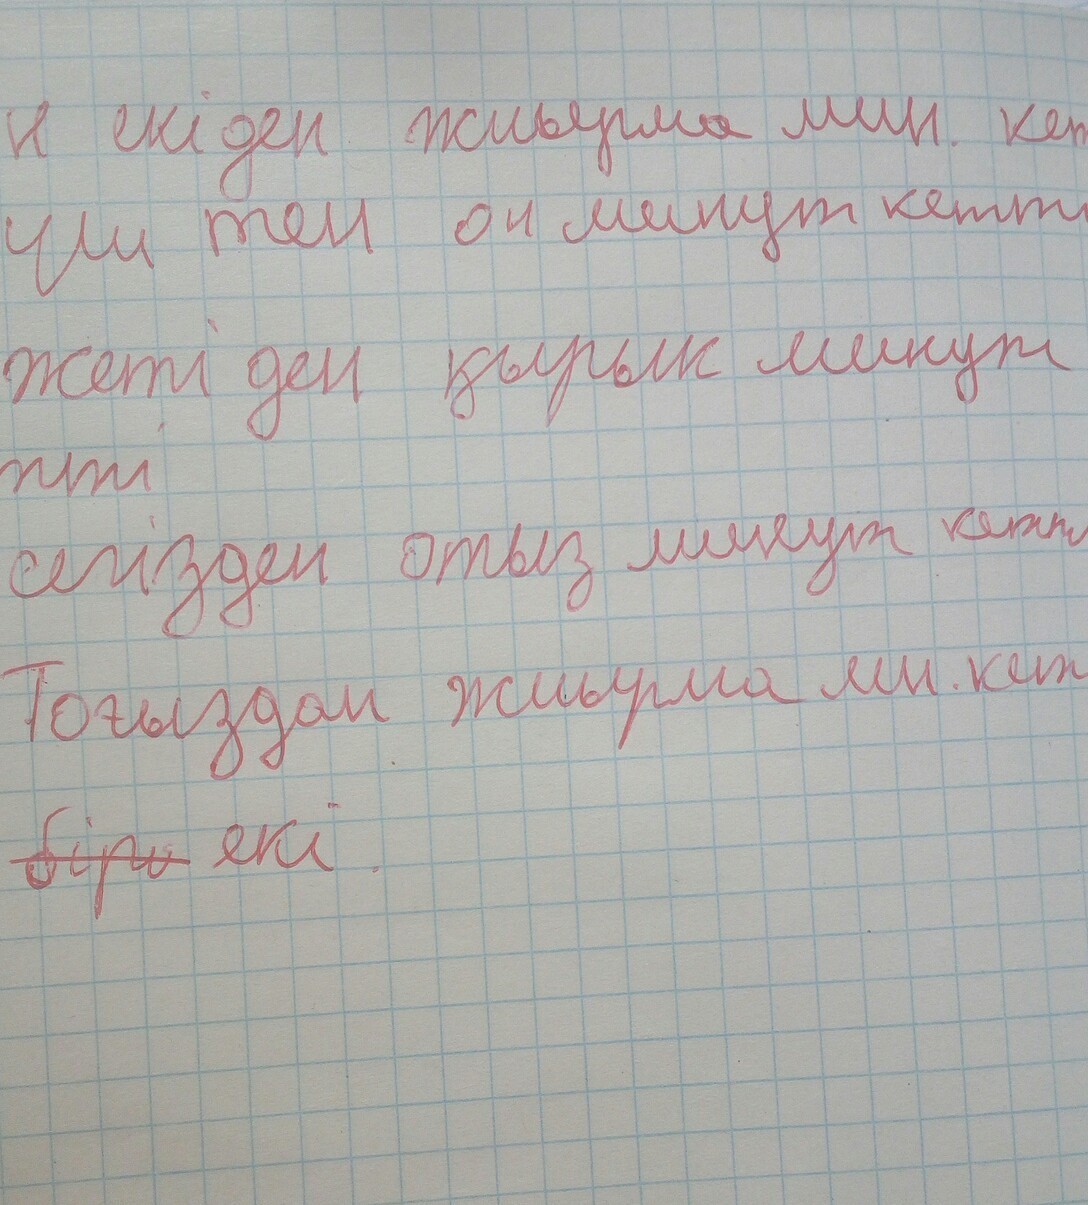 н екі ден жиырма мин. кет
үш тен он минут кетті
жеті ден қырық минут
тті
сегізден отыз минут кетті
Тоғыздан жиырма ми. кет
екі.